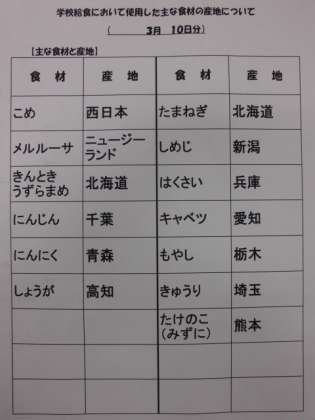 学校給食において使用した主な食材の産地について
( 3月 10日分)
【主な食材と産地】
食 材 産 地 食 材 産 地
こめ 西日本 たまねぎ 北海道
メルルーサ ニュージーランド しめじ 新潟
きんとき うずらまめ 北海道 はくさい 兵庫
にんじん 千葉 キャベツ 愛知
にんにく 青森 もやし 栃木
しょうが 高知 きゅうり 埼玉
たけのこ (みずに) 熊本